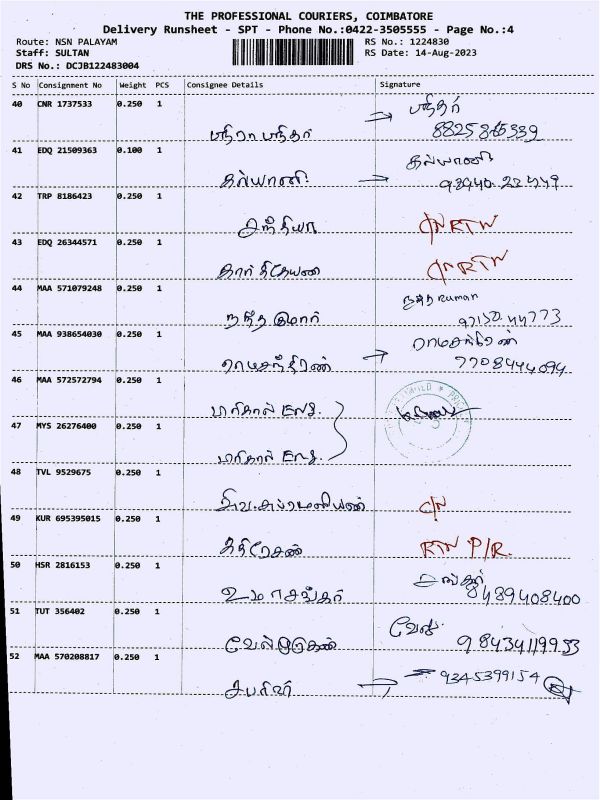 THE PROFESSIONAL COURIERS, COIMBATORE
Delivery Runsheet - SPT - Phone No.:0422-3505555 - Page No.:4
Route: NSN PALAYAM RS No.: 1224830
Staff: SULTAN RS Date: 14-Aug-2023
DRS No.: DCJB122483004
S No Consignment No Weight PCS Consignee Details Signature
40 CNR 1737533 0.250 1
ஸ்ரீதர்
8825865339
41 EDQ 21509363 0.100 1
கல்யாணி
கல்யாணி
42 TRP 8186423 0.250 1
சந்தியா C/N RTN
43 EDQ 26344571 0.250 1
கார்திகேயன C/N RTN
44 MAA 571079248 0.250 1
நந்த குமார் 97150 44773
45 MAA 938654030 0.250 1
ராமசந்திரன்
ராமசந்திரன் 7708444094
46 MAA 572572794 0.250 1
47 MYS 26276400 0.250 1
48 TVL 9529675 0.250 1
சிவ சுப்ரமணியன் C/N
49 KUR 695395015 0.250 1
கதிரேசன் RTN P/R.
50 HSR 2816153 0.250 1
உமா சங்கர் 8489408400
51 TUT 356402 0.250 1
வேல்முருகன் 9843419953
52 MAA 570208817 0.250 1
சபரிஷ் 9345399154